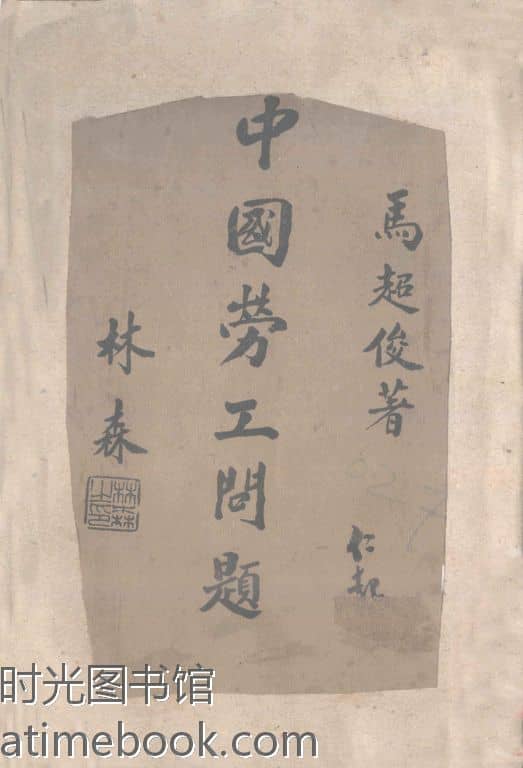 馬超俊著
仁起
中國勞工問題
林森
林森之印
时光图书馆
atimebook.com